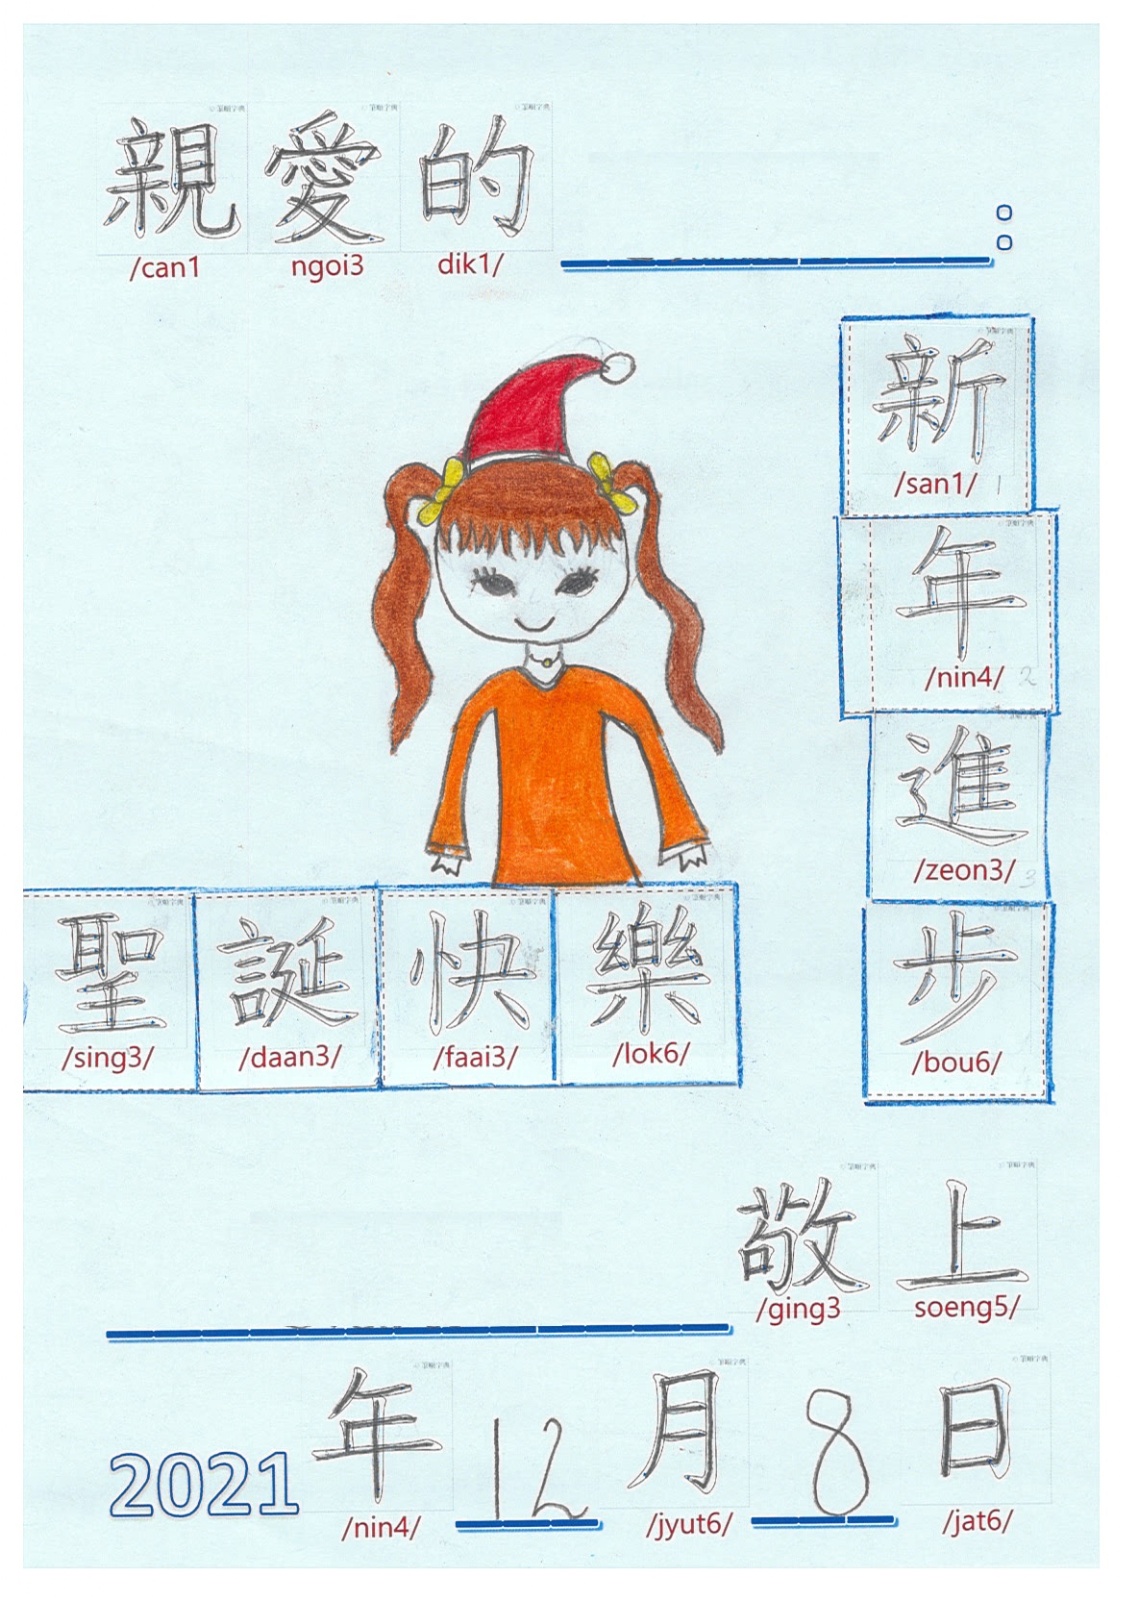 親愛的 :
/can1 ngoi3 dik1/
新
/san1/ 1
年
/nin4/ 2
進
/zeon3/ 3
步
/bou6/
聖誕快樂
/sing3/ /daan3/ /faai3/ /lok6/
敬上
/ging3 soeng5/
2021年12月8日
/nin4/ /jyut6/ /jat6/